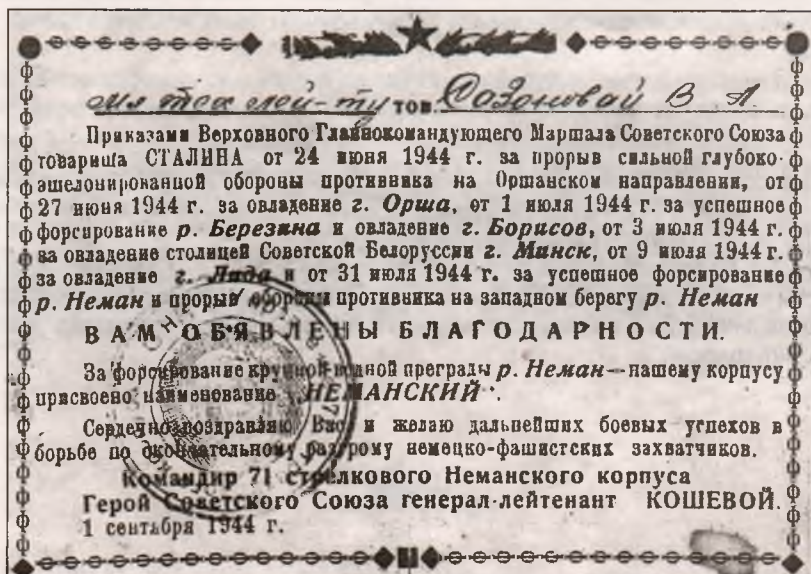 мл тех лей-ту тов. Сазоновой В А
Приказами Верховного Главнокомандующего Маршала Советского Союза
товарища СТАЛИНА от 24 июня 1944 г. за прорыв сильной глубоко-
эшелонированной обороны противника на Оршанском направлении, от
27 июня 1944 г. за овладение г. Орша, от 1 июля 1944 г. за успешное
форсирование р. Березина и овладение г. Борисов, от 3 июля 1944 г.
за овладение столицей Советской Белоруссии г. Минск, от 9 июля 1944 г.
за овладение г. Лида и от 31 июля 1944 г. за успешное форсирование
р. Неман и прорыв обороны противника на западном берегу р. Неман
ВАМ ОБ'ЯВЛЕНЫ БЛАГОДАРНОСТИ.
За форсирование крупной водной преграды р. Неман—нашему корпусу
присвоено наименование „НЕМАНСКИЙ“.
Сердечно поздравляю Вас и желаю дальнейших боевых успехов в
борьбе по окончательному разгрому немецко-фашистских захватчиков.
Командир 71 стрелкового Неманского корпуса
Герой Советского Союза генерал-лейтенант КОШЕВОЙ.
1 сентября 1944 г.